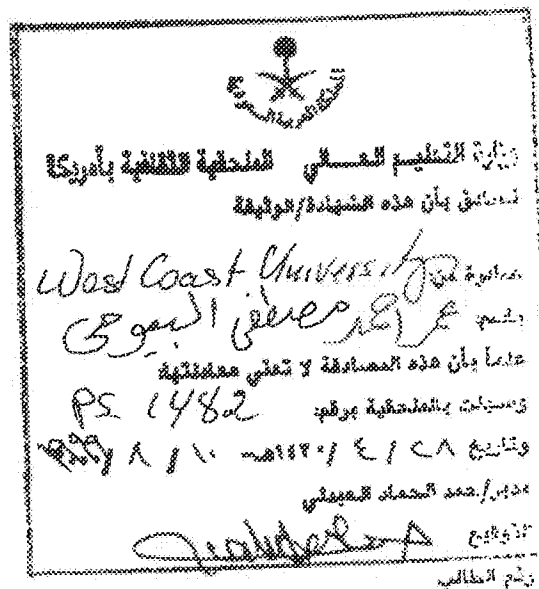 وزارة التعليم العالي الملحقية الثقافية بأمريكا
تصادق بأن هذه الشهادة/الوثيقة
صادرة من West Coast University
باسم مصطفى
علماً بأن هذه المصادقة لا تعني معادلتها
وسجلت بالملحقية برقم PS 1482
وتاريخ ٢٨ / ٤ / ١٤٣٠هـ ١٠ / ٨ /
مدير/حمد الحماد
التوقيع
رقم الطالب